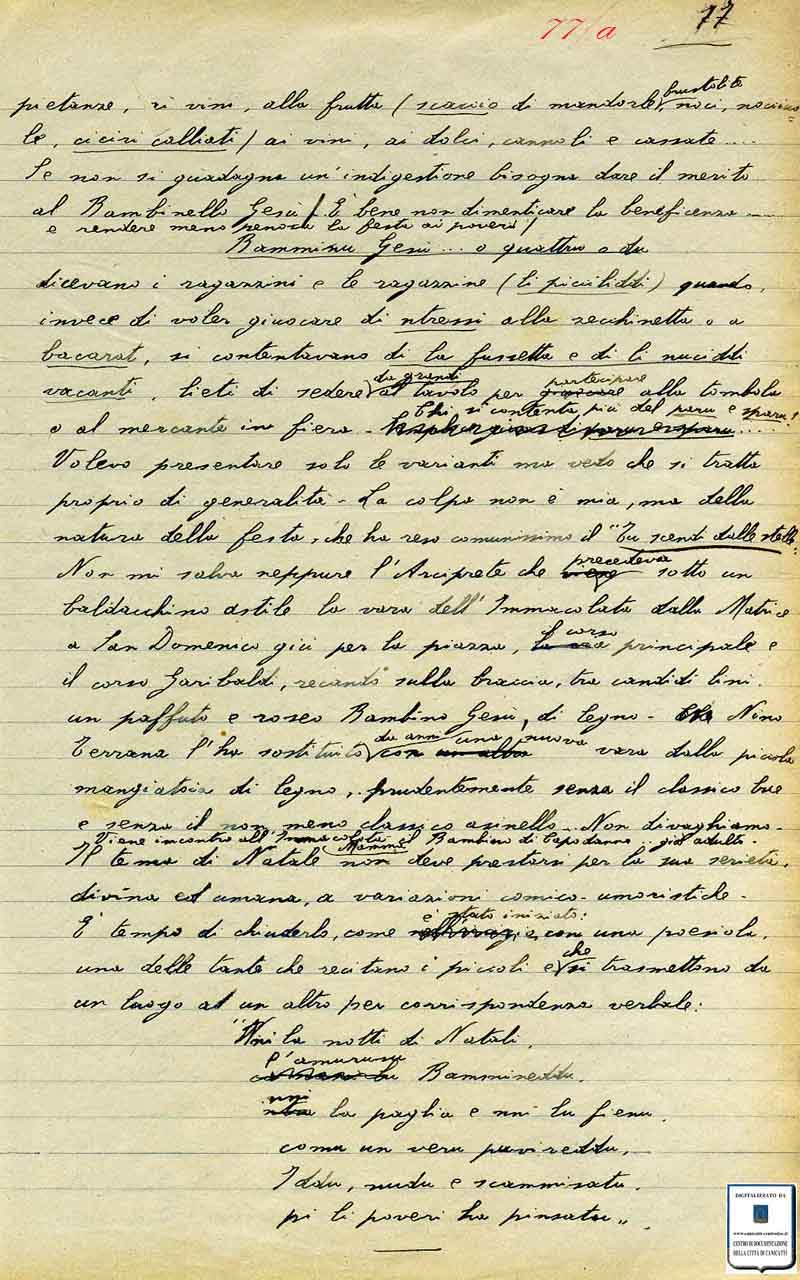 77/a 77
brustolite
pietanze, ai vini, alla frutta (scaccio di mandorle, noci, nocciuo=
le, ciciri calliati) ai vini, ai dolci, cannoli e cassate ....
Se non si guadagna un'indigestione bisogna dare il merito
al Bambinello Gesù / È bene non dimenticare la beneficenza ....
e rendere meno penosa la festa ai poveri /
Bamminu Gesù ... o quattru o du
dicevano i ragazzini e le ragazzine (li picciliddi) quando,
invece di voler giuocare di ntressi alla zecchinetta o a
bacarat, si contentavano di la fussetta e di li nuciddi
da grandi partecipare
vacanti, lieti di sedere al tavolo per giocare alla tombola
Chi si contenta più del paru e sparu?
o al mercante in fiera -
Volevo presentare solo le varianti ma vedo che si tratta
proprio di generalità - La colpa non è mia, ma della
natura della festa, che ha reso comunissimo il "Tu scendi dalle stelle=
precedeva
Non mi salva neppure l'Arciprete che viene sotto un
baldacchino astile la vara dell'Immacolata dalla Matrice
il corso
a San Domenico giù per la piazza, la via principale e
il corso Garibaldi, recando sulla braccia, tra candidi lini,
un paffuto e roseo Bambino Gesù, di legno - Nino
da anni una nuova
Terrana l'ha sostituito con un altra vara dalla piccola
mangiatoia di legno, prudentemente senza il classico bue
e senza il non meno classico asinello... Non divaghiamo -
Viene incontro all'Immacolata il Bambino di Capodanno, già adulto -
Mamma
Il tema di Natale non deve prestarsi per la sua serietà,
divina ed umana, a variazioni comico-umoristiche -
è stato iniziato:
E' tempo di chiuderlo, come con una poesiola,
che
una delle tante che recitano i piccoli e si trasmettono da
un luogo at un altro per corrispondenza verbale:
"Nni la notti di Natali,
l'amurusu
Bammineddu,
nni
ntra la paglia e nni lu fienu,
comu un veru puvireddu,
Iddu, nudu e scammisatu,
pi li poveri ha pinsatu",
DIGITALIZZATO DA
CENTRO DI DOCUMENTAZIONE
DELLA CITTÀ DI CANICATTÌ